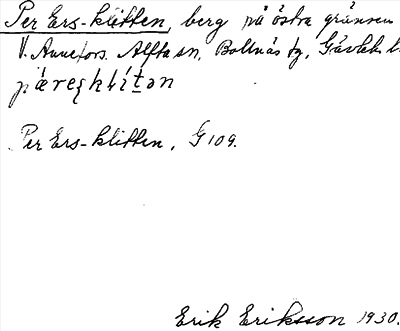 Per Ers-klitten, berg på östra gränsen
V. Annefors. Alfta sn, Bollnäs tg, Gävleb. l.
Per Ers-klitten, G 109.
Erik Eriksson 1930.